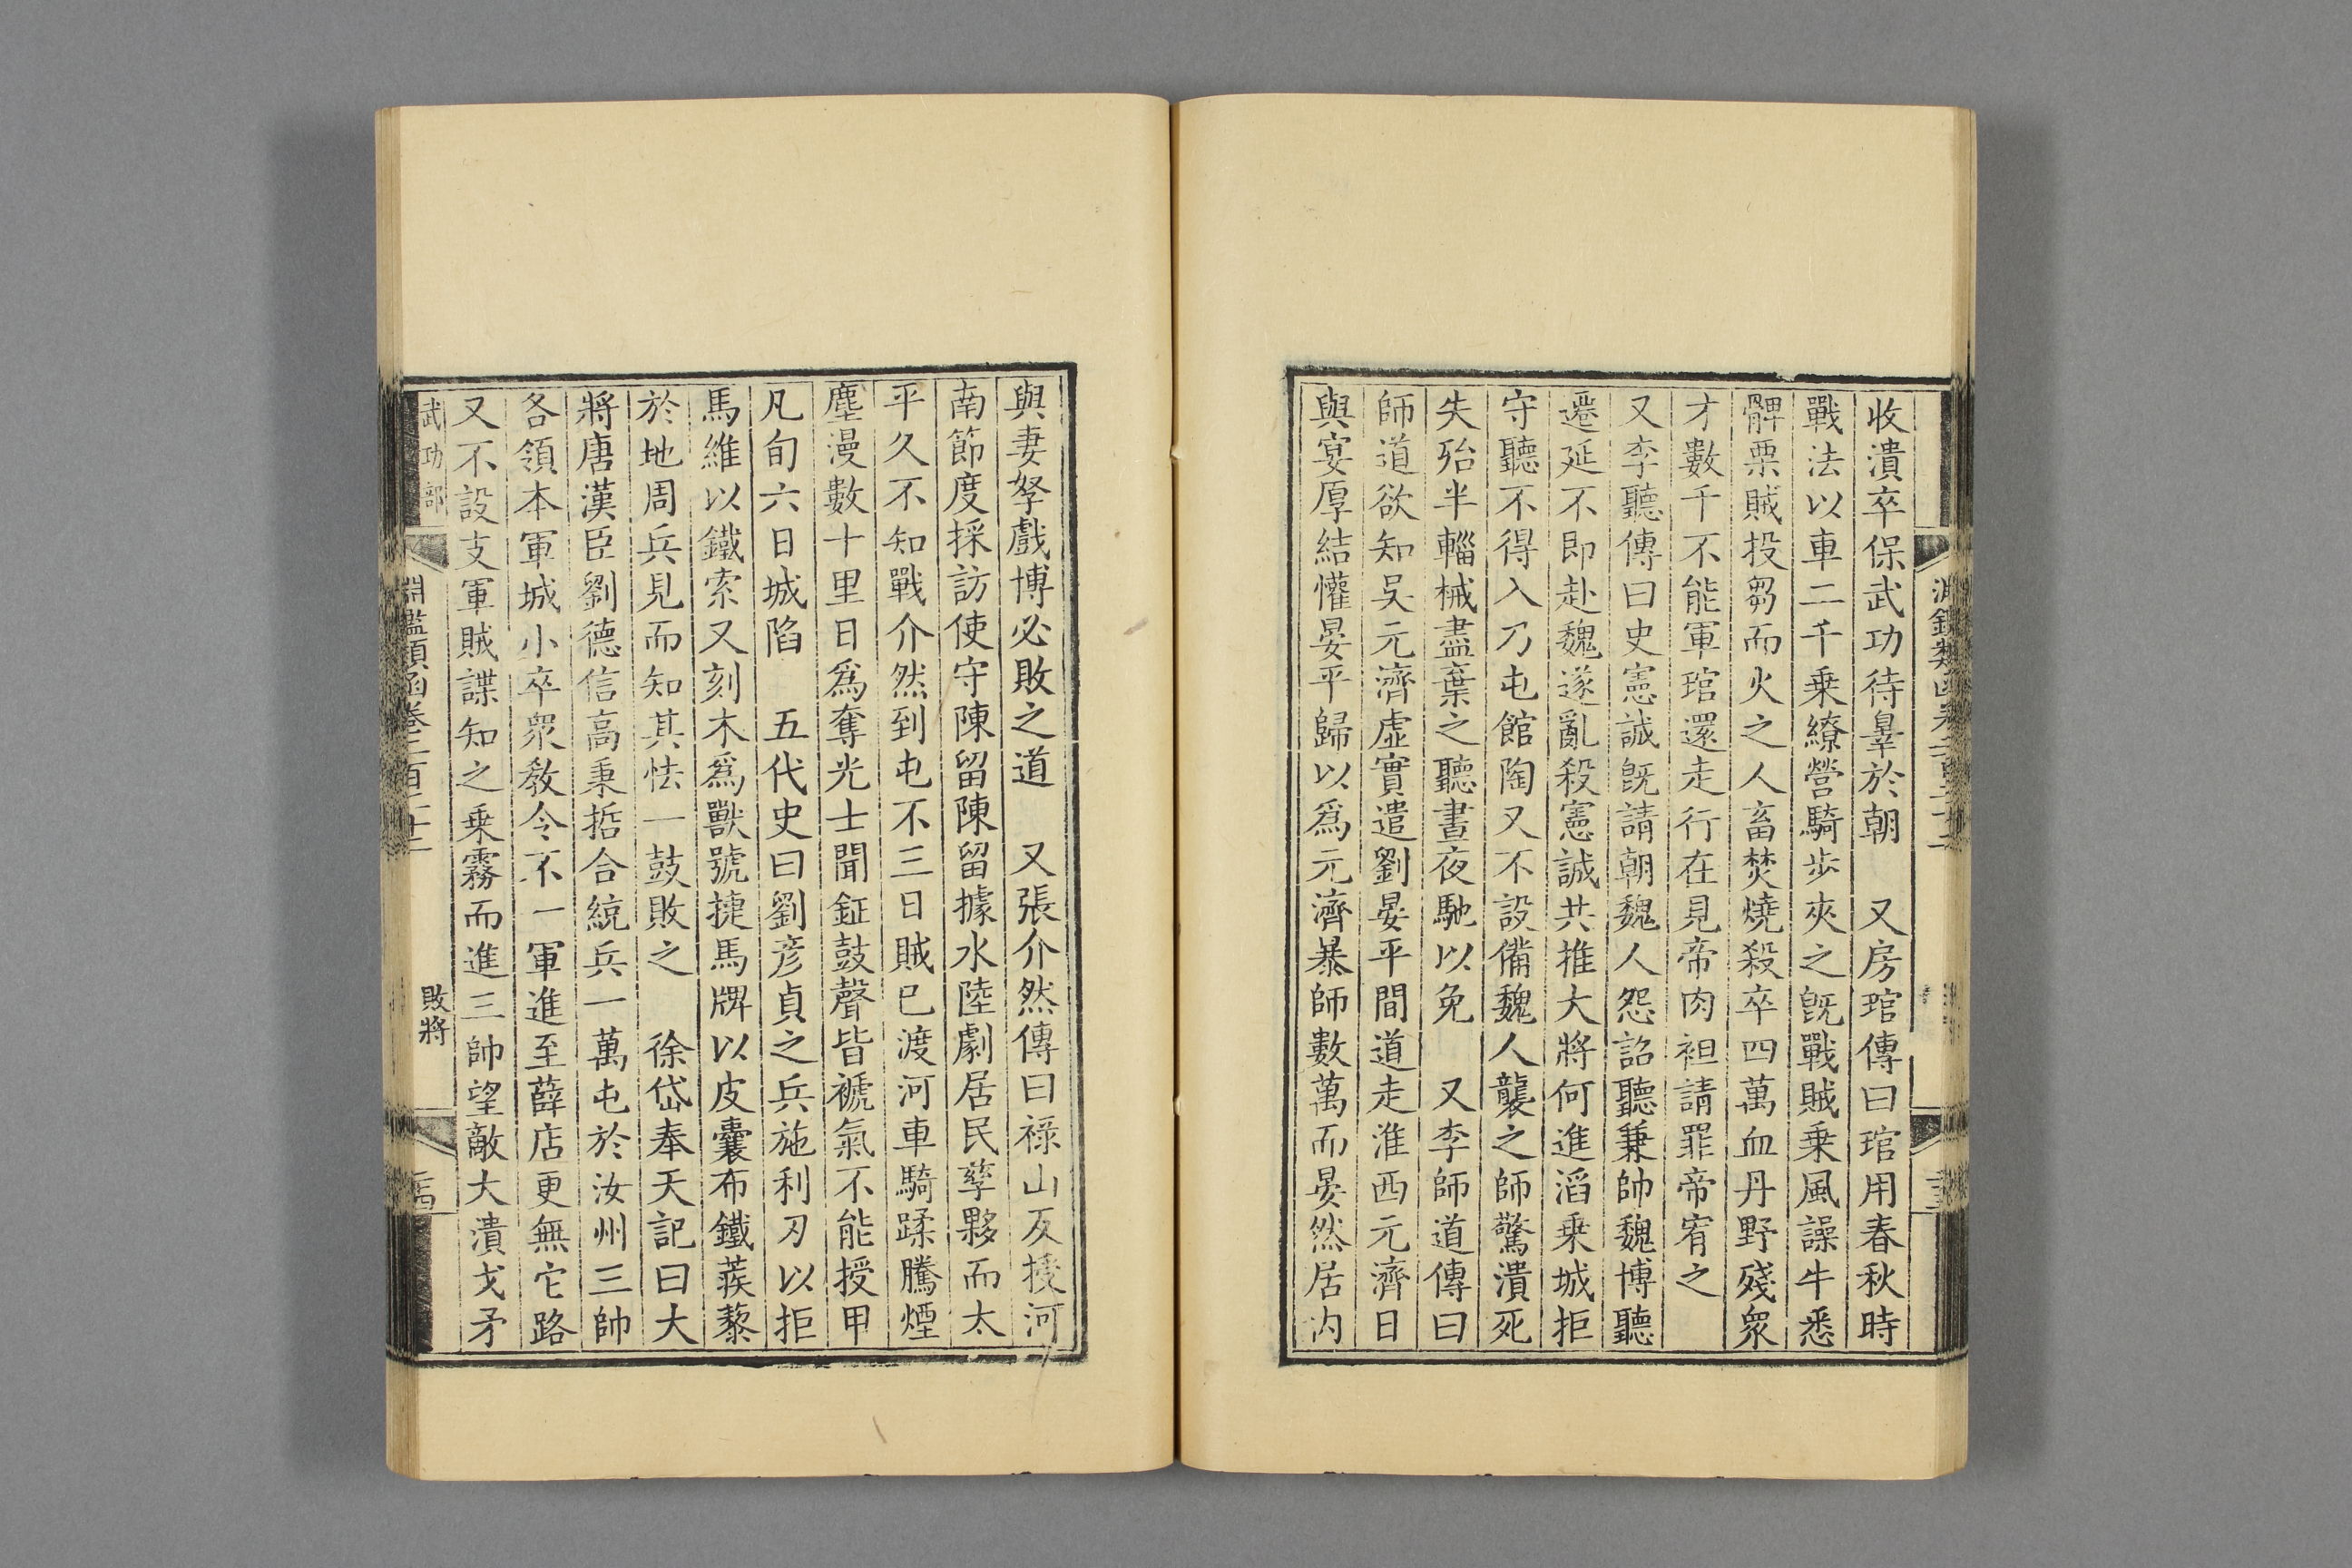 收潰卒保武功待辠於朝　又房琯傳曰琯用春秋時
戰法以車二千乗繚營騎歩夾之旣戰賊乗風譟牛悉
髀栗賊投芻而火之人畜焚燒殺卒四萬血丹野殘衆
才數千不能軍琯還走行在見帝肉袒請罪帝宥之
又李聽傳曰史憲誠旣請朝魏人怨詔聽兼帥魏博聽
遷延不即赴魏遂亂殺憲誠共推大將何進滔乗城拒
守聽不得入乃屯館陶又不設備魏人襲之師驚潰死
失殆半輜械盡棄之聽晝夜馳以免　又李師道傳曰
師道欲知吳元濟虛實遣劉晏平間道走淮西元濟日
與宴厚結懽晏平歸以爲元濟暴師數萬而晏然居内
與妻孥戲博必敗之道　又張介然傳曰祿山反授河
南節度採訪使守陳留陳留據水陸劇居民孳夥而太
平久不知戰介然到屯不三日賊已渡河車騎蹂騰煙
塵漫數十里日爲奪光士聞鉦鼓聲皆褫氣不能授甲
凡旬六日城陷　五代史曰劉彦貞之兵施利刃以拒
馬維以鐵索又刻木爲獸號捷馬牌以皮囊布鐵蒺藜
於地周兵見而知其怯一鼓敗之　徐岱奉天記曰大
將唐漢臣劉德信高秉哲合統兵一萬屯於汝州三帥
各領本軍城小卒衆教令不一軍進至薛店更無它路
又不設支軍賊諜知之乗霧而進三帥望敵大潰戈矛
武功部
淵鑑類函卷二百二十二
敗將